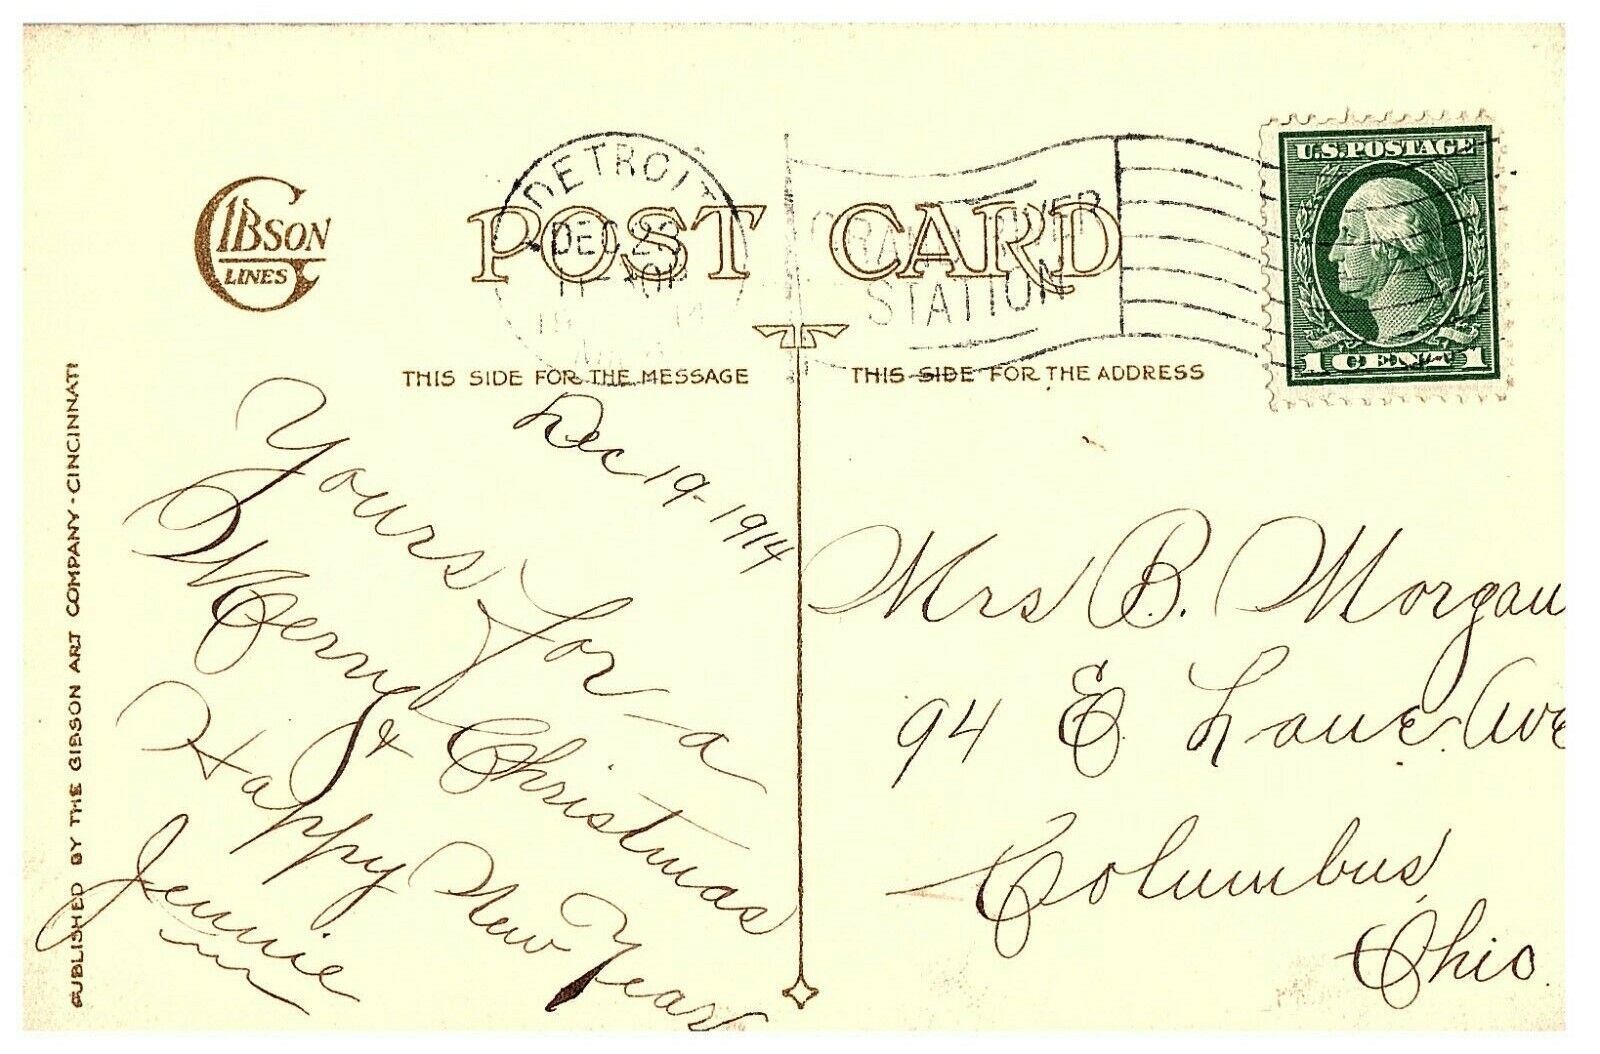 GIBSON
LINES
POST CARD
DETROIT
DEC
STATION
U.S. POSTAGE
1 CENT 1
THIS SIDE FOR THE MESSAGE
THIS SIDE FOR THE ADDRESS
PUBLISHED BY THE GIBSON ART COMPANY - CINCINNATI
Dec 19-1914
Yours for a
Merry Christmas
& Happy New Year
Jennie
Mrs B. Morgan
94 E Lane Ave
Columbus,
Ohio.